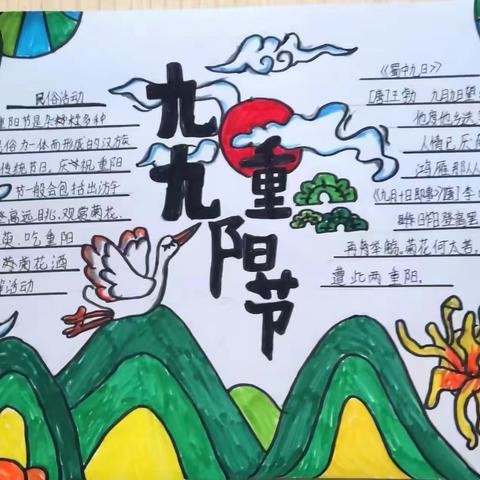 九九重阳节
民俗活动
重阳节是杂糅多种
民俗为一体而形成的汉族
传统节日。庆祝重阳
节一般会包括出游
登高远眺、观赏菊花、
萸、吃重阳
菊花酒
活动
《蜀中九日》
[唐]王勃 九月九日望
他席他乡送
人情已厌南
鸿雁那从
《九月十日即事》[唐]李
昨日登高罢
再举觞。菊花何太苦,
遭此两重阳。